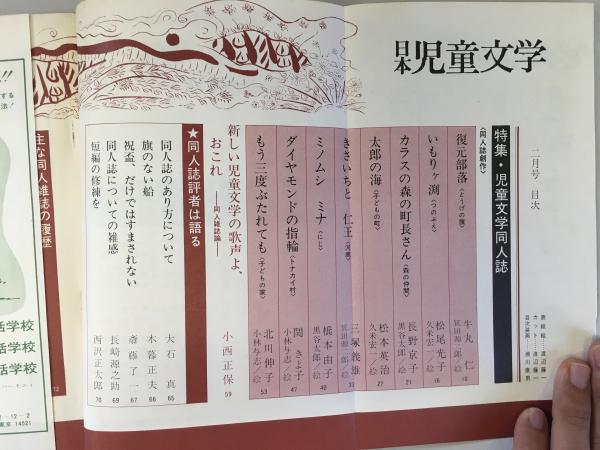 日本児童文学
二月号 目次
特集・児童文学同人誌
〈同人誌創作〉
復元部落 牛丸 仁 10
いもりヶ渕〈つのぶえ〉 松尾光子 16
久米宏一/絵
カラスの森の町長さん〈森の仲間〉 長野京子 21
黒谷太郎/絵
太郎の海〈子どもの町〉 松本英治 27
久米宏一/絵
きさいちと 仁王 三塚義雄 33
箕田源二郎/絵
ミノムシ ミナ〈にじ〉 橋本由子 40
黒谷太郎/絵
ダイヤモンドの指輪〈トナカイ村〉 関 きよ子 47
小林与志/絵
もう三度ぶたれても〈子どもの家〉 北川伸子 53
小林与志/絵
新しい児童文学の歌声よ、
おこれ ―同人雑誌論― 小西正保 59
★同人誌評者は語る
同人誌のあり方について 大石 真 65
旗のない船 木暮正夫 66
祝盃、だけではすまされない 斎藤了一 67
同人誌についての雑感 長崎源之助 69
短編の修練を 西沢正太郎 70
主な同人雑誌の履歴
72
活学校
活学校
活学校